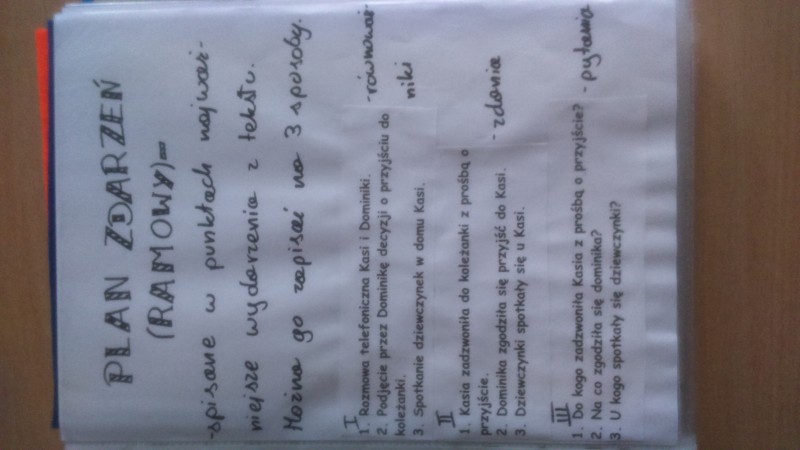 PLAN ZDARZEŃ
(RAMOWY)...
-spisane w punktach najważ-
niejsze wydarzenia z tekstu.
Można go zapisać na 3 sposoby.
I
1. Rozmowa telefoniczna Kasi i Dominiki.
2. Podjęcie przez Dominikę decyzji o przyjściu do
koleżanki.
3. Spotkanie dziewczynek w domu Kasi.
-równoważ-
niki
II
1. Kasia zadzwoniła do koleżanki z prośbą o
przyjście.
2. Dominika zgodziła się przyjść do Kasi.
3. Dziewczynki spotkały się u Kasi.
- zdania
III
1. Do kogo zadzwoniła Kasia z prośbą o przyjście?
2. Na co zgodziła się dominika?
3. U kogo spotkały się dziewczynki?
- pytania